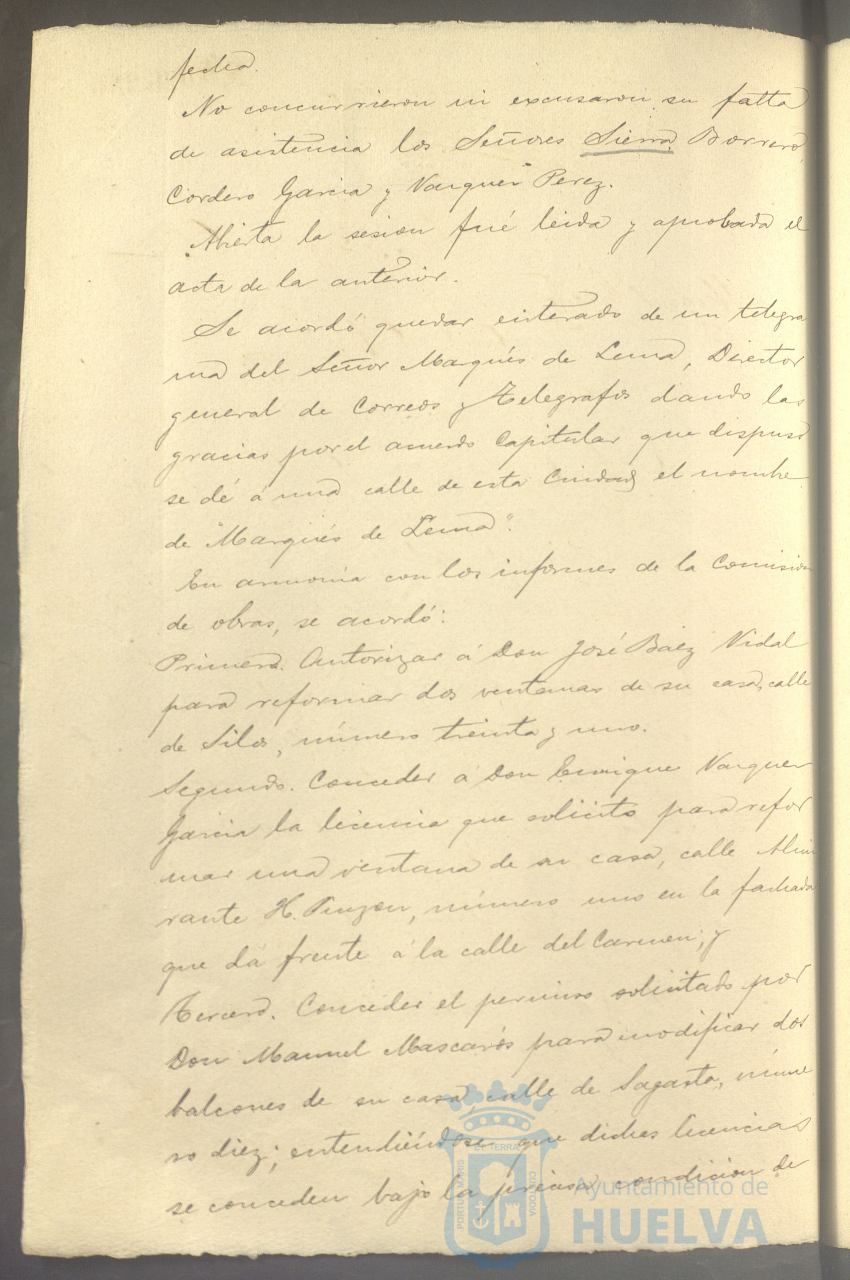 fecha.
No concurrieron ni excusaron su falta
de asistencia los Señores Sierra, Borrero,
Cordero Garcia y Vazquez Perez.
Abierta la sesion fué leida y aprobada el
acta de la anterior.
Se acordó quedar enterado de un telegra
ma del Señor Maqués de Lema, Director
general de Correos y Telegrafos dando las
gracias por el acuerdo Capitular que dispuso
se dé á una calle de esta Ciudad el nombre
de "Marqués de Lema".
En armonia con los informes de la Comision
de obras, se acordó:
Primero. Autorizar á Don José Baez Vidal
para reformar dos ventanas de su casa, calle
de Silos, número treinta y uno.
Segundo. Conceder á Don Enrique Vazquez
Garcia la licencia que solicita para refor
mar una ventana de su casa, calle Almi
rante H. Pinzon, número uno en la fachada
que dá frente á la calle del Carmen; y
Tercero. Conceder el permiso solicitado por
Don Manuel Mascarós para modificar dos
balcones de su casa calle de Sagasta, núme
ro diez; entendiéndose que dichas licencias
se conceden bajo la precisa condicion de
PORTUS MARIS
ET TERRAE
CUSTODIA
Ayuntamiento de
HUELVA